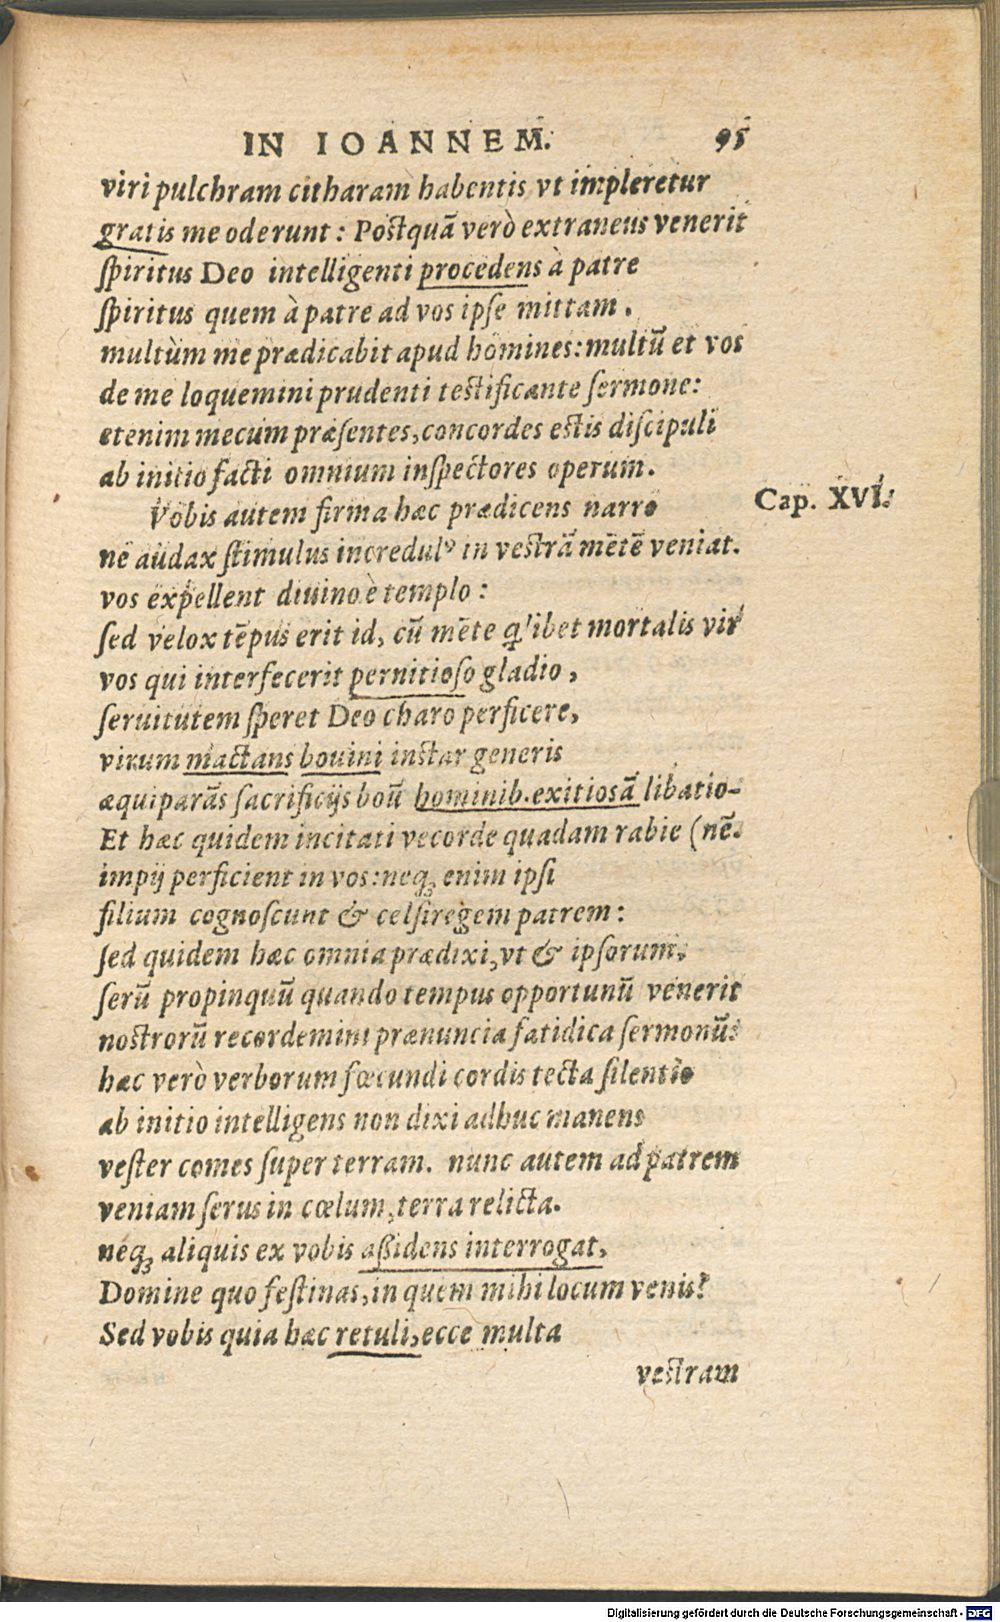 IN IOANNEM. 95
viri pulchram citharam habentis vt impleretur
gratis me oderunt: Postquā verò extraneus venerit
ſpiritus Deo intelligenti procedens à patre
ſpiritus quem à patre ad vos ipſe mittam.
multùm me prædicabit apud homines: multū et vos
de me loquemini prudenti testificante ſermone:
etenim mecum præſentes, concordes estis diſcipuli
ab initio facti omnium inſpectores operum.
Vobis autem firma hæc prædicens narro
Cap. XVI.
nē audax ſtimulus incredulꝰ in vestrā mētē veniat.
vos expellent diuino è templo:
ſed velox tēpus erit id, cū mēte q'libet mortalis vir
vos qui interfecerit pernitioſo gladio,
ſeruitutem ſperet Deo charo perficere,
virum mactans bouini instar generis
æquiparās ſacrificijs boū hominib. exitiosā libatio-
Et hæc quidem incitati vecorde quadam rabie (nē.
impij perficient in vos: neqꝫ enim ipſi
filium cognoſcunt & celſiregem patrem:
ſed quidem hæc omnia prædixi, vt & ipſorum,
ſerū propinquū quando tempus opportunū venerit
nostrorū recordemini prænuncia fatidica ſermonū:
hæc verò verborum fœcundi cordis tecta ſilentio
ab initio intelligens non dixi adhuc manens
veſter comes ſuper terram. nunc autem ad patrem
veniam ſerus in cœlum, terra relicta.
neqꝫ aliquis ex vobis aßidens interrogat,
Domine quo feſtinas, in quem mihi locum venis?
Sed vobis quia hæc retuli, ecce multa
vestram
Digitalisierung gefördert durch die Deutsche Forschungsgemeinschaft - DFG